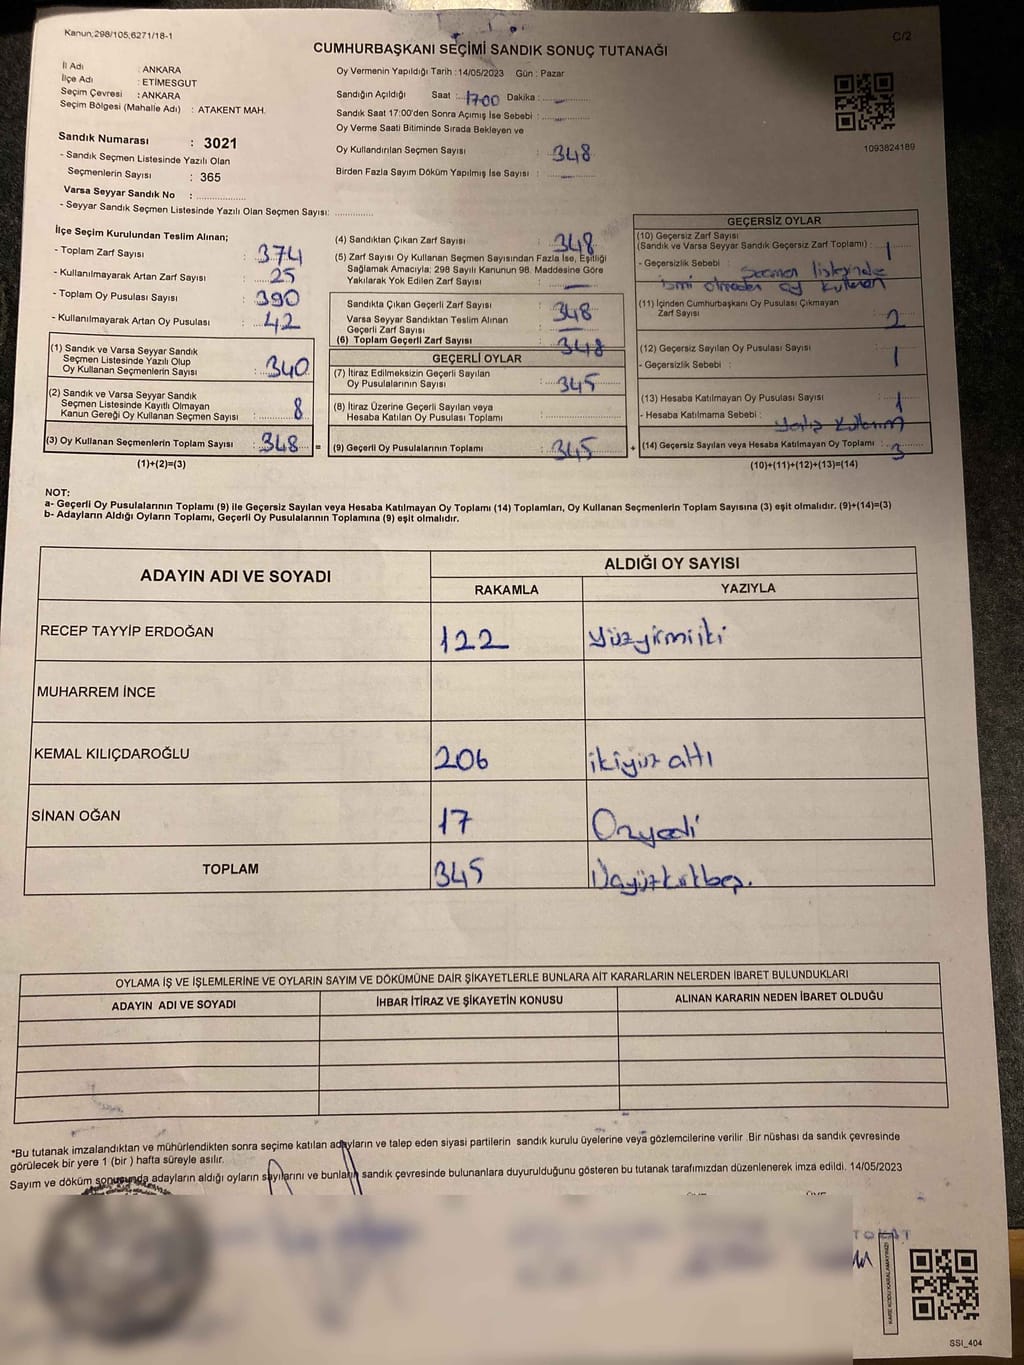 Kanun;298/105,6271/18-1
C/2
CUMHURBAŞKANI SEÇİMİ SANDIK SONUÇ TUTANAĞI
İl Adı : ANKARA
İlçe Adı : ETİMESGUT
Seçim Çevresi : ANKARA
Seçim Bölgesi (Mahalle Adı) : ATAKENT MAH.
Sandık Numarası : 3021
- Sandık Seçmen Listesinde Yazılı Olan
Seçmenlerin Sayısı : 365
Varsa Seyyar Sandık No :
- Seyyar Sandık Seçmen Listesinde Yazılı Olan Seçmen Sayısı:
Oy Vermenin Yapıldığı Tarih :14/05/2023 Gün : Pazar
Sandığın Açıldığı Saat : 17:00 Dakika : –
Sandık Saat 17:00'den Sonra Açımış İse Sebebi : –
Oy Verme Saati Bitiminde Sırada Bekleyen ve
Oy Kullandırılan Seçmen Sayısı : 348
Birden Fazla Sayım Döküm Yapılmış İse Sayısı : –
1093824189
İlçe Seçim Kurulundan Teslim Alınan;
- Toplam Zarf Sayısı : 374
- Kullanılmayarak Artan Zarf Sayısı : 25
- Toplam Oy Pusulası Sayısı : 390
- Kullanılmayarak Artan Oy Pusulası : 42
(1) Sandık ve Varsa Seyyar Sandık
Seçmen Listesinde Yazılı Olup
Oy Kullanan Seçmenlerin Sayısı : 340
(2) Sandık ve Varsa Seyyar Sandık
Seçmen Listesinde Kayıtlı Olmayan
Kanun Gereği Oy Kullanan Seçmen Sayısı : 8
(3) Oy Kullanan Seçmenlerin Toplam Sayısı : 348 =
(1)+(2)=(3)
(4) Sandıktan Çıkan Zarf Sayısı : 348
(5) Zarf Sayısı Oy Kullanan Seçmen Sayısından Fazla İse, Eşitliği
Sağlamak Amacıyla; 298 Sayılı Kanunun 98. Maddesine Göre
Yakılarak Yok Edilen Zarf Sayısı : –
Sandıkta Çıkan Geçerli Zarf Sayısı : 348
Varsa Seyyar Sandıktan Teslim Alınan
Geçerli Zarf Sayısı : –
(6) Toplam Geçerli Zarf Sayısı : 348
GEÇERLİ OYLAR
(7) İtiraz Edilmeksizin Geçerli Sayılan
Oy Pusulalarının Sayısı : 345
(8) İtiraz Üzerine Geçerli Sayılan veya
Hesaba Katılan Oy Pusulaları Toplamı :
(9) Geçerli Oy Pusulalarının Toplamı : 345 +
GEÇERSİZ OYLAR
(10) Geçersiz Zarf Sayısı
(Sandık ve Varsa Seyyar Sandık Geçersiz Zarf Toplamı) : 1
- Geçersizlik Sebebi : Seçmen listesinde
ismi olmadan oy kullanan
(11) İçinden Cumhurbaşkanı Oy Pusulası Çıkmayan
Zarf Sayısı : 2
(12) Geçersiz Sayılan Oy Pusulası Sayısı : 1
- Geçersizlik Sebebi :
(13) Hesaba Katılmayan Oy Pusulası Sayısı : 1
- Hesaba Katılmama Sebebi : kullanım
(14) Geçersiz Sayılan veya Hesaba Katılmayan Oy Toplamı : 3
(10)+(11)+(12)+(13)=(14)
NOT:
a- Geçerli Oy Pusulalarının Toplamı (9) ile Geçersiz Sayılan veya Hesaba Katılmayan Oy Toplamı (14) Toplamları, Oy Kullanan Seçmenlerin Toplam Sayısına (3) eşit olmalıdır. (9)+(14)=(3)
b- Adayların Aldığı Oyların Toplamı, Geçerli Oy Pusulalarının Toplamına (9) eşit olmalıdır.
ADAYIN ADI VE SOYADI
ALDIĞI OY SAYISI
RAKAMLA YAZIYLA
RECEP TAYYİP ERDOĞAN 122 Yüzyirmiiki
MUHARREM İNCE
KEMAL KILIÇDAROĞLU 206 ikiyüz altı
SİNAN OĞAN 17 Onyedi
TOPLAM 345 Üçyüzkırkbeş.
OYLAMA İŞ VE İŞLEMLERİNE VE OYLARIN SAYIM VE DÖKÜMÜNE DAİR ŞİKAYETLERLE BUNLARA AİT KARARLARIN NELERDEN İBARET BULUNDUKLARI
ADAYIN ADI VE SOYADI İHBAR İTİRAZ VE ŞİKAYETİN KONUSU ALINAN KARARIN NEDEN İBARET OLDUĞU
*Bu tutanak imzalandıktan ve mühürlendikten sonra seçime katılan adayların ve talep eden siyasi partilerin sandık kurulu üyelerine veya gözlemcilerine verilir .Bir nüshası da sandık çevresinde
görülecek bir yere 1 (bir ) hafta süreyle asılır.
Sayım ve döküm sonucunda adayların aldığı oyların sayılarını ve bunların sandık çevresinde bulunanlara duyurulduğunu gösteren bu tutanak tarafımızdan düzenlenerek imza edildi. 14/05/2023
KARE KODU KARALAMAYINIZ!
SSI_404